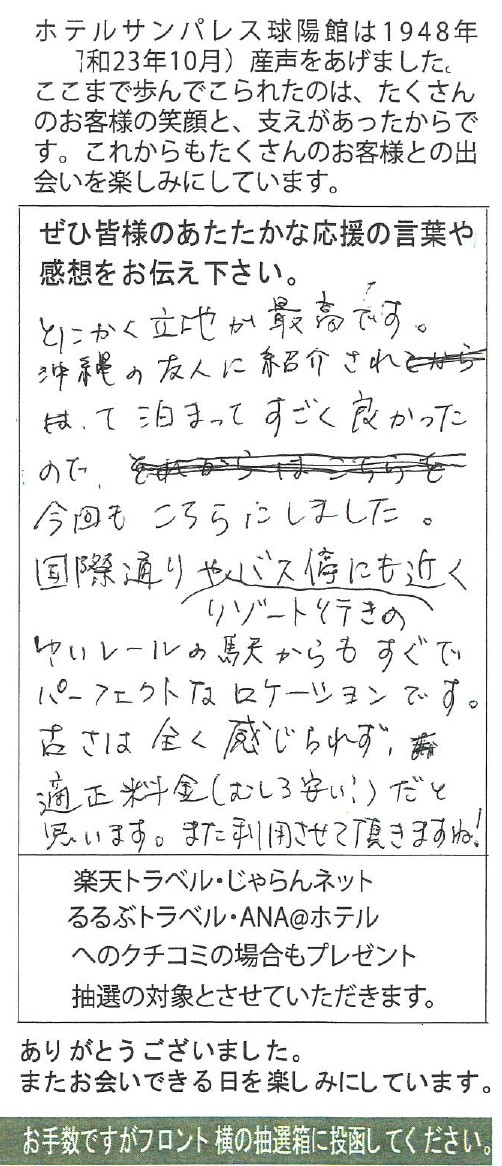 ホテルサンパレス球陽館は1948年
和23年10月）産声をあげました。
ここまで歩んでこられたのは、たくさん
のお客様の笑顔と、支えがあったからで
す。これからもたくさんのお客様との出
会いを楽しみにしています。
ぜひ皆様のあたたかな応援の言葉や
感想をお伝え下さい。
とにかく立地が最高です。
沖縄の友人に紹介され
て泊まってすごく良かった
ので、
今回もこちらにしました。
国際通りやバス停にも近く
リゾート行きの
ゆいレールの駅からもすぐで
パーフェクトなロケーションです。
古さは全く感じられず、
適正料金(むしろ安い!)だと
思います。また利用させて頂きますね!
楽天トラベル・じゃらんネット
るるぶトラベル・ANA@ホテル
へのクチコミの場合もプレゼント
抽選の対象とさせていただきます。
ありがとうございました。
またお会いできる日を楽しみにしています。
お手数ですがフロント横の抽選箱に投函してください。